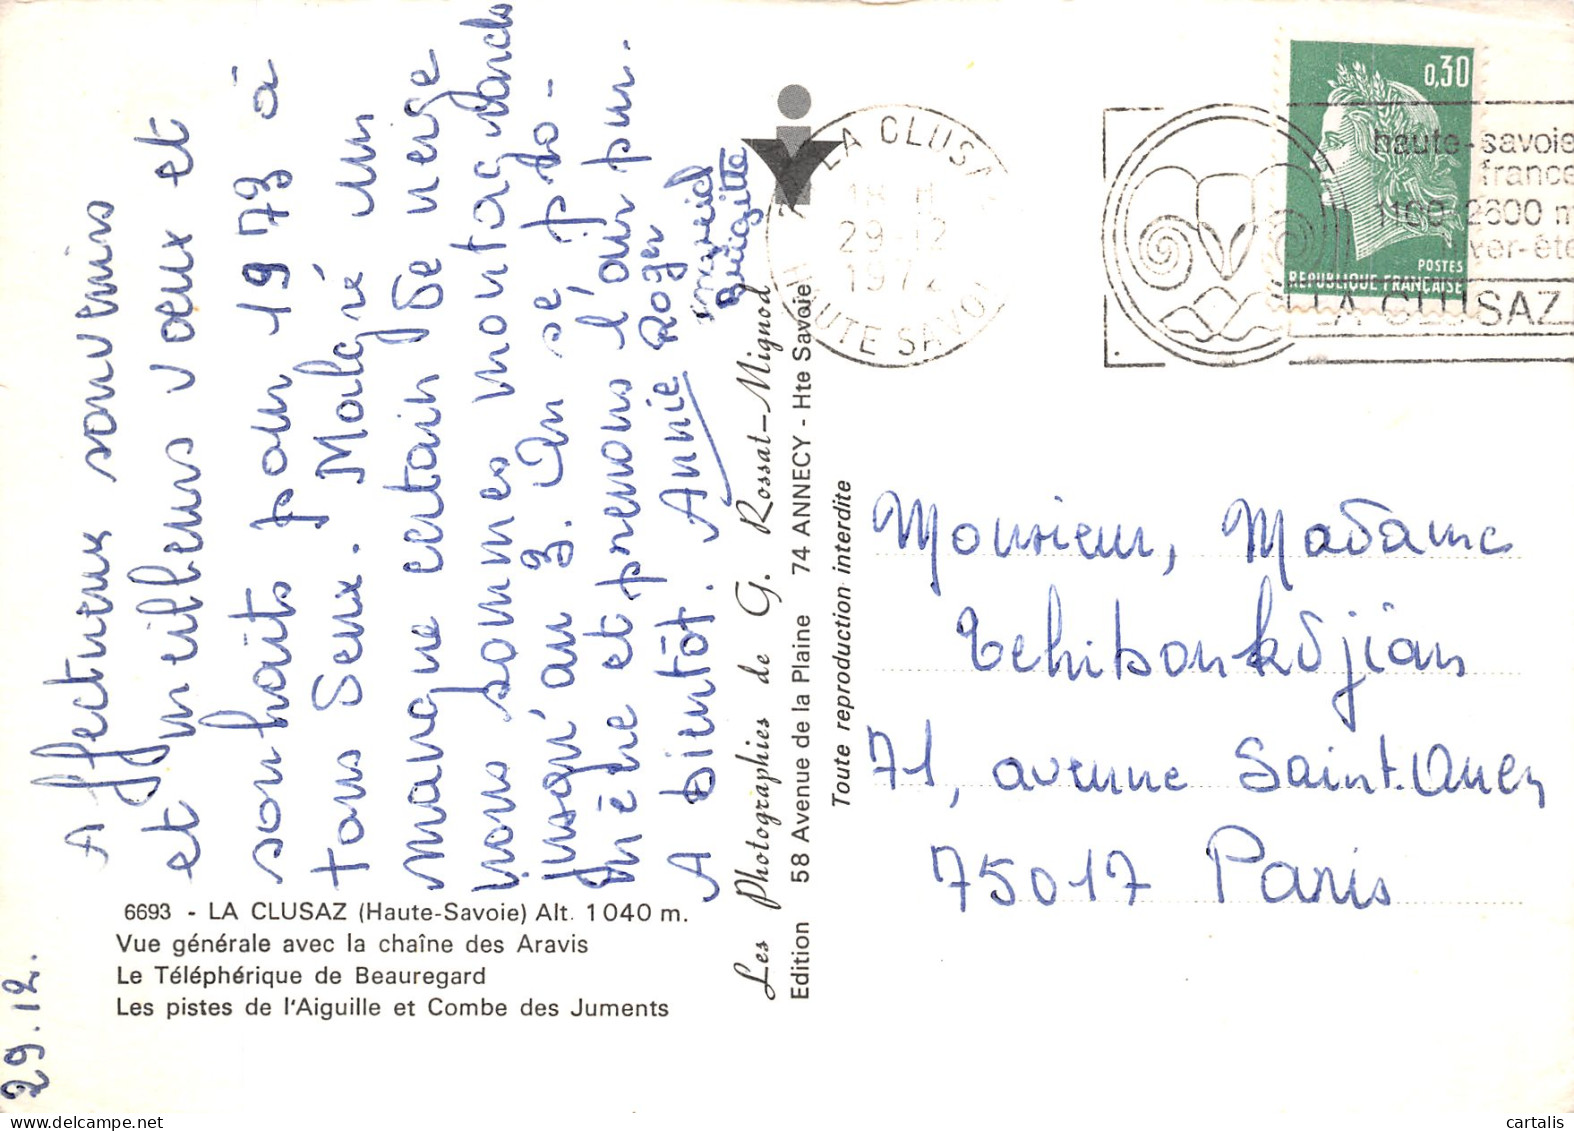 29.12.
Affectueux souvenirs
et meilleurs vœux et
souhaits pour 1973 à
tous Deux. Malgré un
manque certain de neige
nous sommes montagnards
jusqu'au 3. On se pro-
mène et prenons l'air pur.
A bientôt. Annie Roger
Brigitte
6693 - LA CLUSAZ (Haute-Savoie) Alt. 1040 m.
Vue générale avec la chaîne des Aravis
Le Téléphérique de Beauregard
Les pistes de l'Aiguille et Combe des Juments
Les Photographies de G. Rossat-Mignod
Edition 58 Avenue de la Plaine 74 ANNECY - Hte Savoie
Toute reproduction interdite
LA CLUSAZ
18 H
29-12
1972
HAUTE SAVOIE
0,30
POSTES
REPUBLIQUE FRANÇAISE
haute-savoie
france
1100 2600 m
LA CLUSAZ
Monsieur, Madame
Tchiboukdjian
71, avenue Saint.Ouen
75017 Paris
cartalis.com